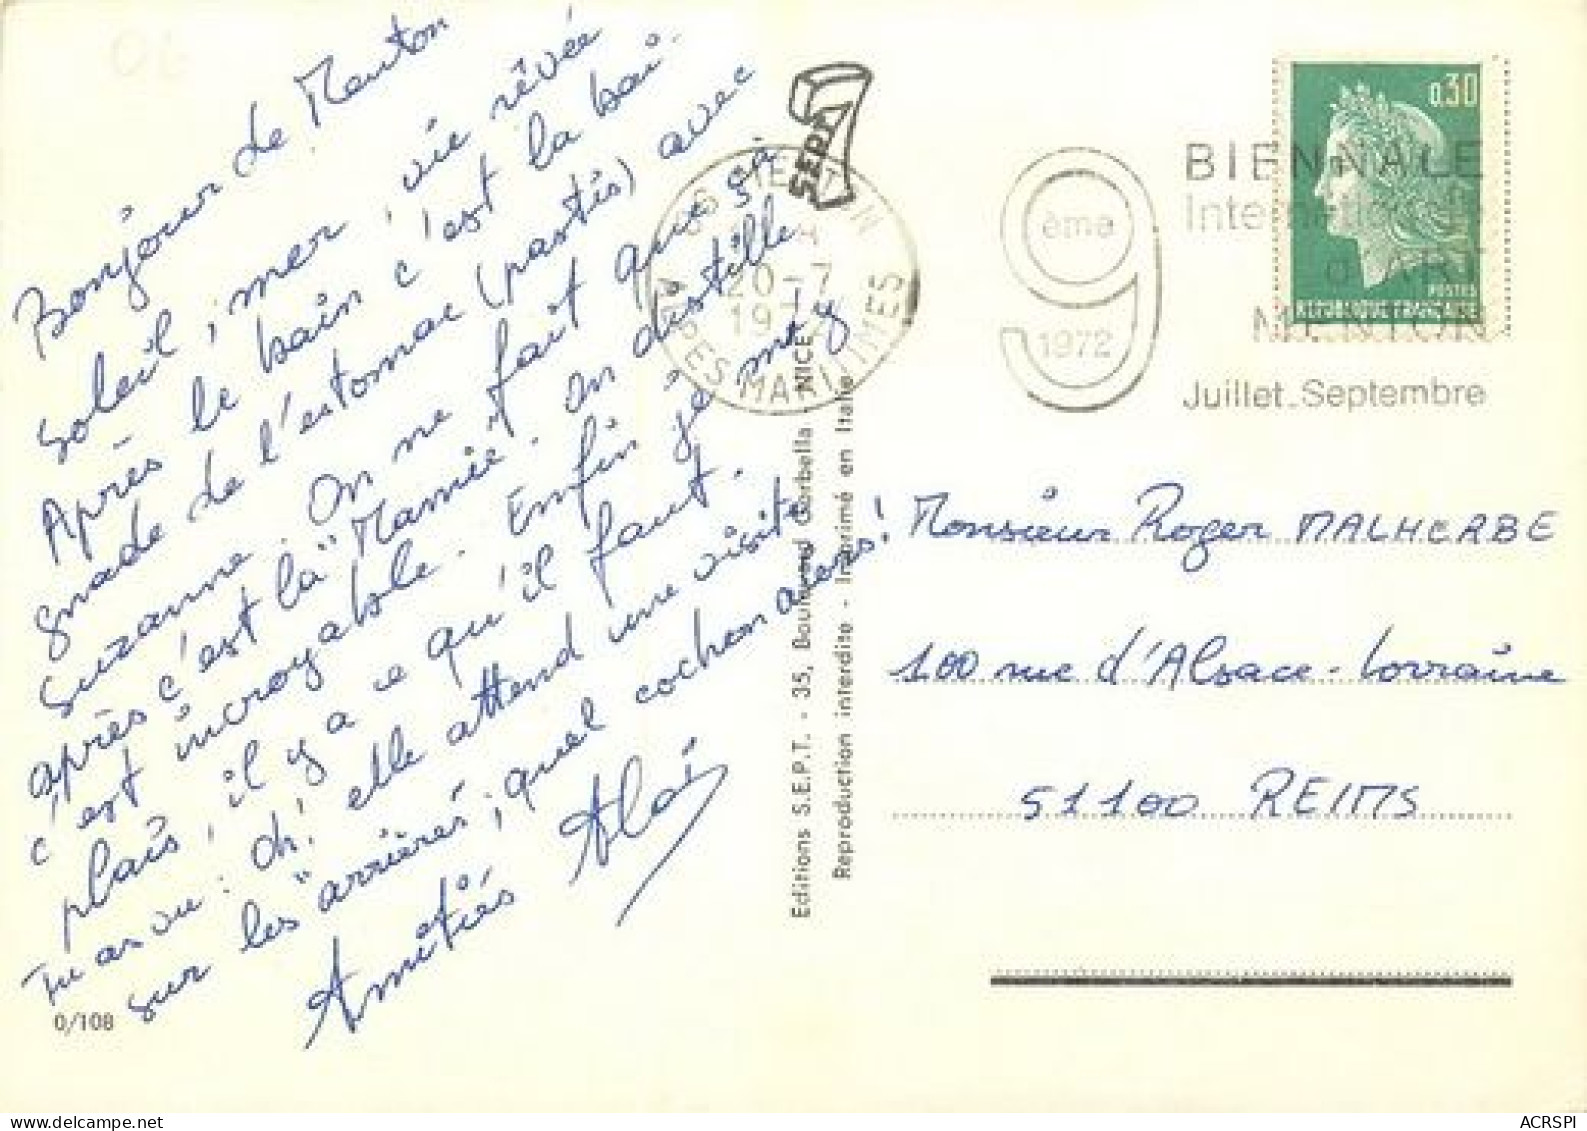 Bonjour de Menton
soleil, mer, vie rêvée
Après le bain c'est la bai-
gnade de l'estomac (pastis) avec
Suzanne. On ne fait que ça
après c'est la "Mamie". On distille
c'est incroyable. Enfin je m'y
plais, il y a ce qu'il faut.
Tu as vu : oh! elle attend une visite
sur les "arrières", quel cochon alors!
Amitiés Aloï
0/108
SEPT
06 MENTON
20-7
19
ALPES MARITIMES
9
ème
1972
BIENNALE
Internationale
D'ART
MENTON
Juillet_Septembre
0,30
POSTES
REPUBLIQUE FRANÇAISE
Editions S.E.P.T. - 35, Boulevard Gorbella NICE
Reproduction interdite - Imprimé en Italie
Monsieur Roger MALHERBE
100 rue d'Alsace-Lorraine
51100 REIMS
ACRSPI